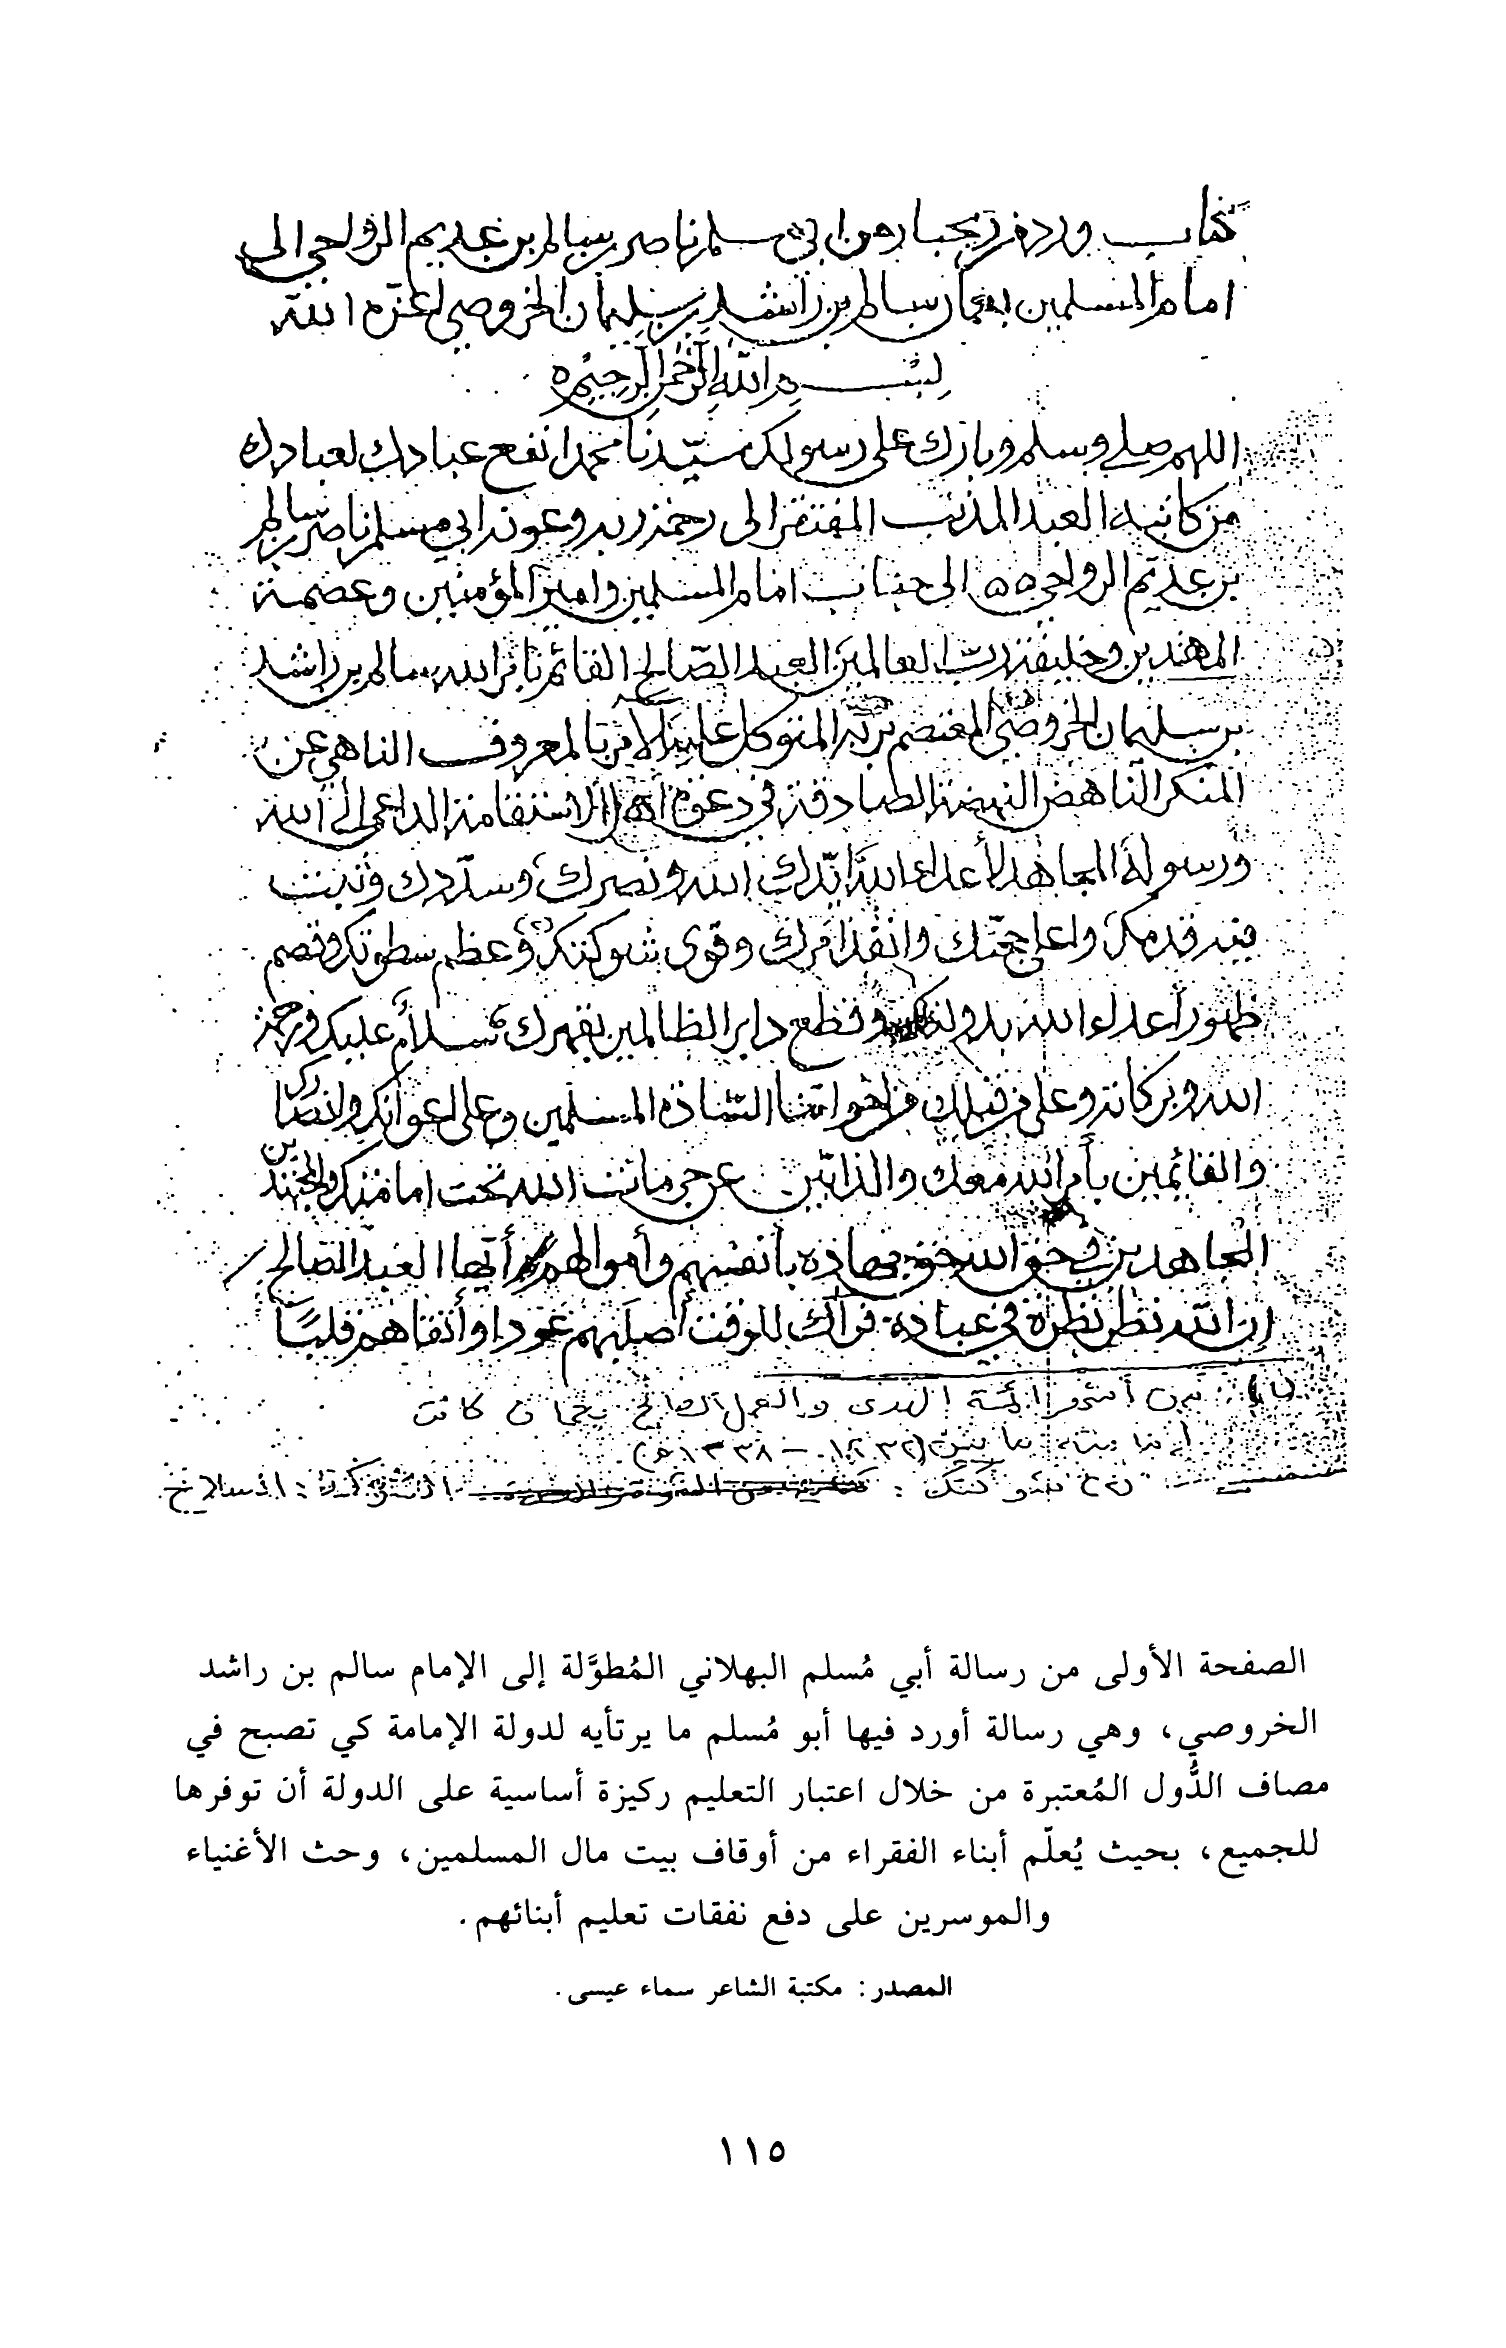 كتاب ورد من زنجبار من ابي مسلم ناصر بن سالم بن عديم الرواحي الى
امام المسلمين بعمان سالم بن راشد بن سليمان الخروصي اعزه الله
بسم الله الرحمن الرحيم
اللهم صلي وسلم وبارك على رسولك سيّدنا محمد انفع عبادك لعبادك
من كاتبه العبد المذنب المفتقر الى رحمة ربه وعونه ابي مسلم ناصر بن سالم
بن عديم الرواحي الى جناب امام المسلمين وامير المؤمنين وعصمة
المهتدين وخليفة رب العالمين العبد الصّالح القائم بأمر الله سالم بن راشد
بن سليمان الخروصي المعتصم بربّه المتوكل عليه الآمر بالمعروف الناهي عن
المنكر الناهض النهضة الصادقة في دعوة أهل الاستقامة الداعي إلى الله
ورسوله المجاهد لأعداء الله ايّدك الله ونصرك وسدّدك وثبت
فيه قدمك واعلى حجّتك وانفذ امرك وقوى شوكتك (٢) وعظم سطوتك وقصم
ظهور أعداء الله وقطع دابر الظالمين بقهرك سلام عليك ورحمة
الله وبركاته وعلى من قبلك من اخواننا السادة المسلمين وعلى اعوانك وانصارك
والقائمين بأمر الله معك والذابّين عن حرمات الله تحت امامتك والمجتهدين
المجاهدين في حق الله حق جهاده بأنفسهم وأموالهم أيها العبد الصالح
إن الله نظر نظرة في عباده فرآك للوقت أصلبهم عودا وأتقاهم قلبًا
(١) من أشهر أئمة الهدى والعمل الصالح بعمان كانت
إمامته ما بين
شوكتك : الشوكة : السلاح
الصفحة الأولى من رسالة أبي مُسلم البهلاني المُطوَّلة إلى الإمام سالم بن راشد
الخروصي، وهي رسالة أورد فيها أبو مُسلم ما يرتأيه لدولة الإمامة كي تصبح في
مصاف الدُّول المُعتبرة من خلال اعتبار التعليم ركيزة أساسية على الدولة أن توفرها
للجميع، بحيث يُعلّم أبناء الفقراء من أوقاف بيت مال المسلمين، وحث الأغنياء
والموسرين على دفع نفقات تعليم أبنائهم.
المصدر: مكتبة الشاعر سماء عيسى.
١١٥